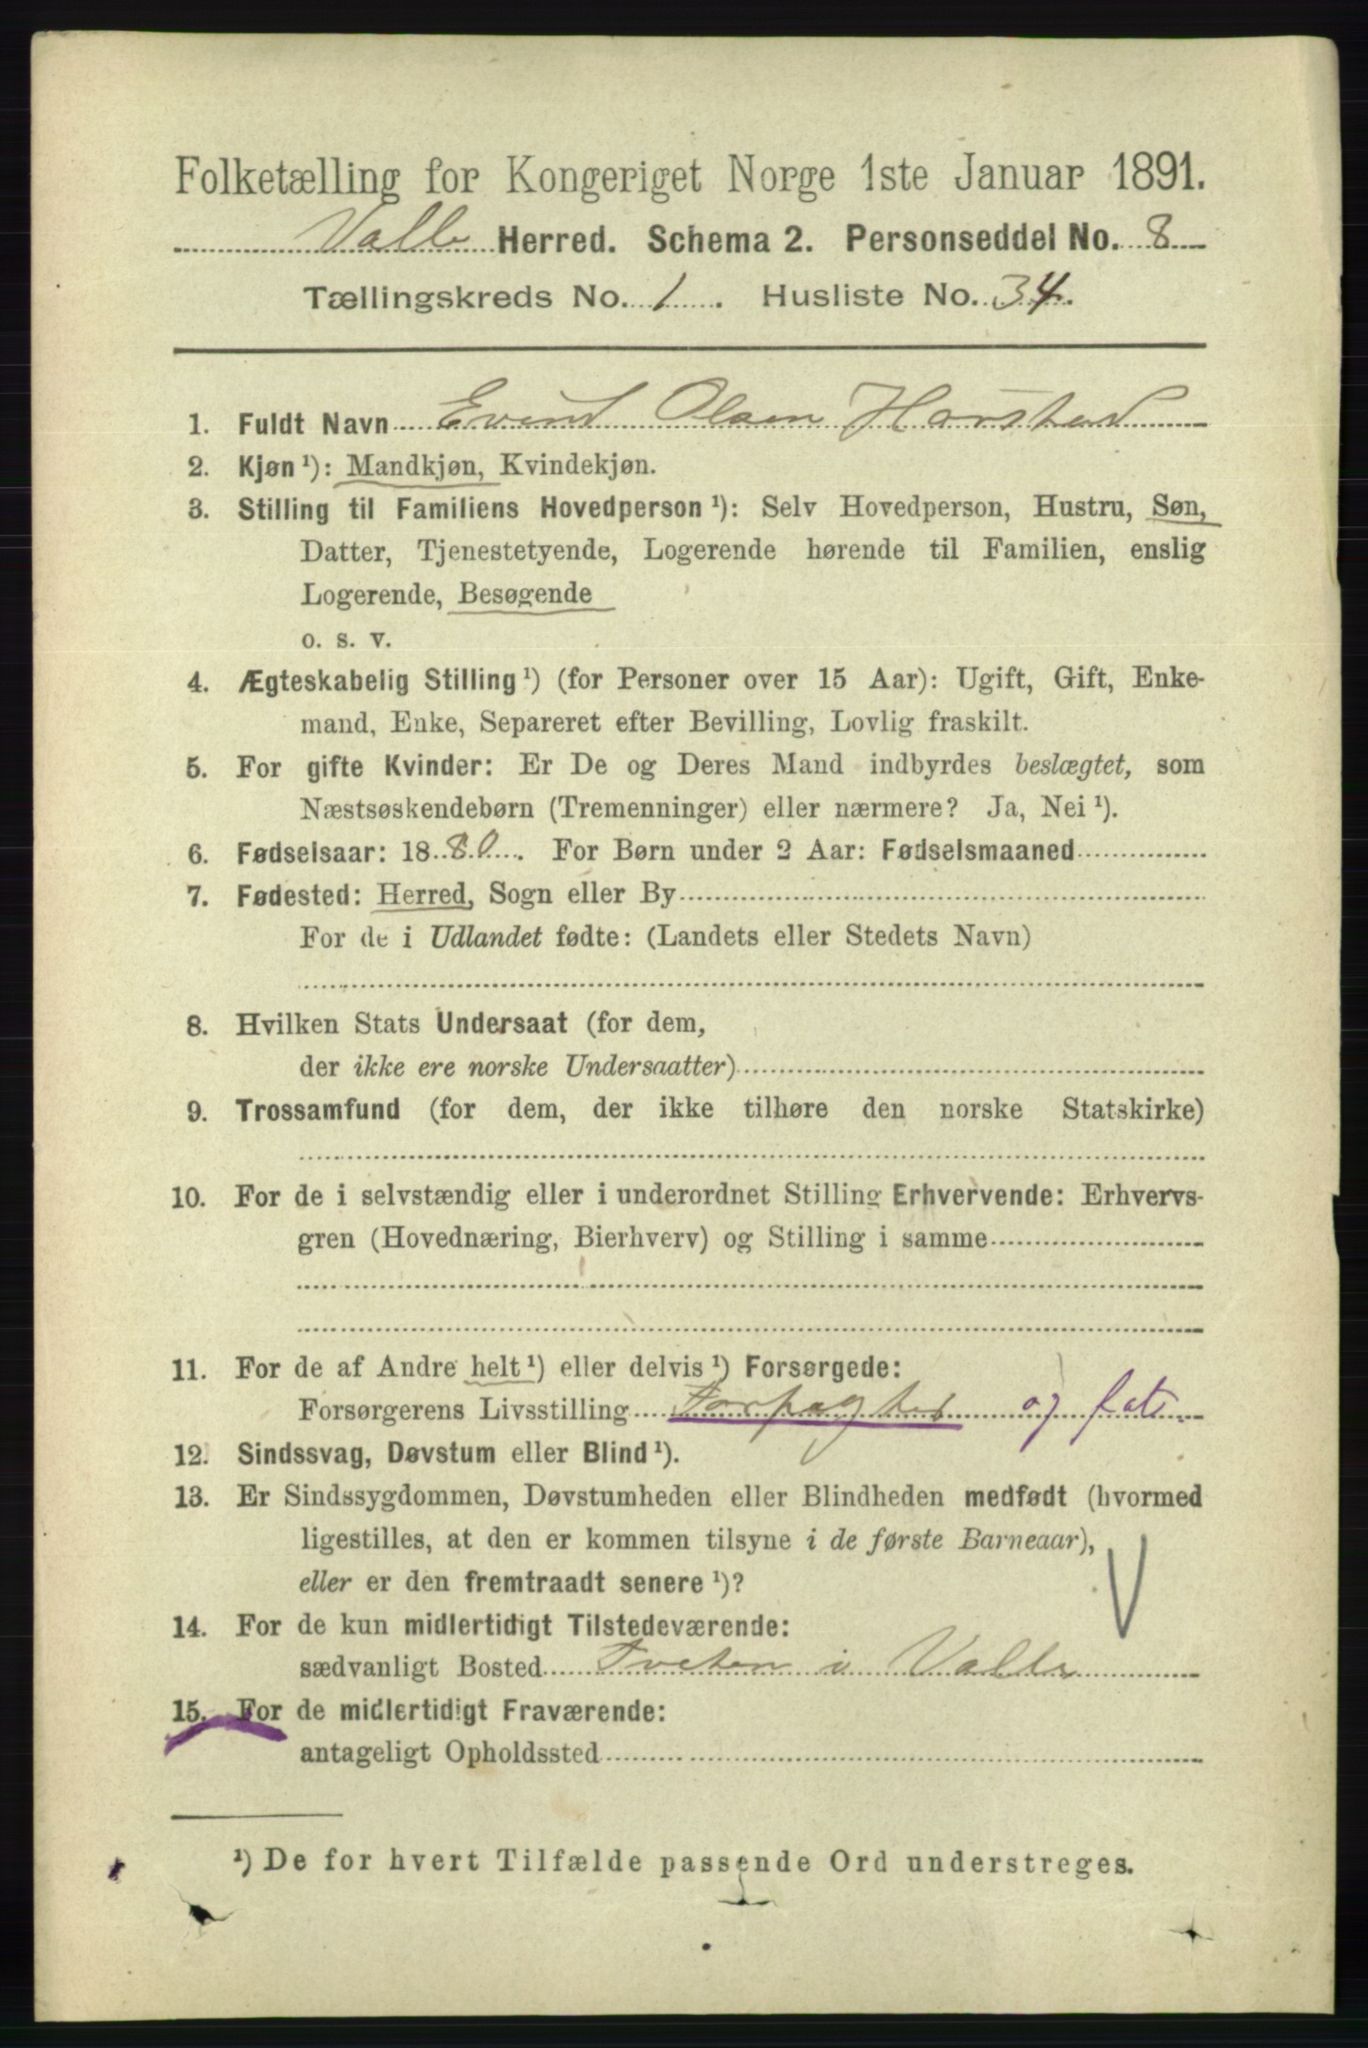 Folketælling for Kongeriget Norge 1ste Januar 1891.
Valle Herred. Schema 2. Personseddel No. 8
Tællingskreds No. 1. Husliste No. 34.
1. Fuldt Navn Evind Olsen Harstad
2. Kjøn ¹): Mandkjøn, Kvindekjøn.
3. Stilling til Familiens Hovedperson ¹): Selv Hovedperson, Hustru, Søn,
Datter, Tjenestetyende, Logerende hørende til Familien, enslig
Logerende, Besøgende
o. s. v.
4. Ægteskabelig Stilling ¹) (for Personer over 15 Aar): Ugift, Gift, Enke-
mand, Enke, Separeret efter Bevilling, Lovlig fraskilt.
5. For gifte Kvinder: Er De og Deres Mand indbyrdes beslægtet, som
Næstsøskendebørn (Tremenninger) eller nærmere? Ja, Nei ¹).
6. Fødselsaar: 1880. For Børn under 2 Aar: Fødselsmaaned
7. Fødested: Herred, Sogn eller By
For de i Udlandet fødte: (Landets eller Stedets Navn)
8. Hvilken Stats Undersaat (for dem,
der ikke ere norske Undersaatter)
9. Trossamfund (for dem, der ikke tilhøre den norske Statskirke)
10. For de i selvstændig eller i underordnet Stilling Erhvervende: Erhvervs-
gren (Hovednæring, Bierhverv) og Stilling i samme
11. For de af Andre helt ¹) eller delvis ¹) Forsørgede:
Forsørgerens Livsstilling Forpagter og
12. Sindssvag, Døvstum eller Blind ¹).
13. Er Sindssygdommen, Døvstumheden eller Blindheden medfødt (hvormed
ligestilles, at den er kommen tilsyne i de første Barneaar),
eller er den fremtraadt senere ¹)?
14. For de kun midlertidigt Tilstedeværende:
sædvanligt Bosted Tveten i Valle
15. For de midlertidigt Fraværende:
antageligt Opholdssted
¹) De for hvert Tilfælde passende Ord understreges.